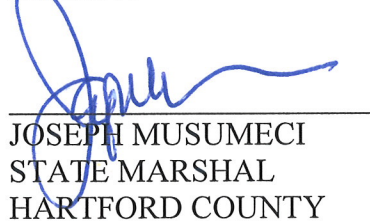 JOSEPH MUSUMECI
STATE MARSHAL
HARTFORD COUNTY